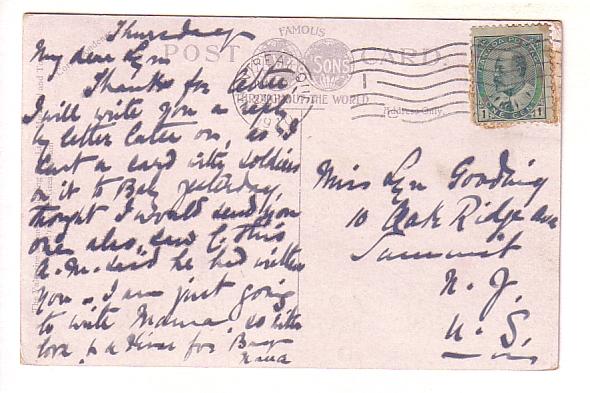 Thursday
My dear Lyn
Thanks for letter
I will write you a reply
by letter later on, as I
sent a card with soldiers
on it to Bab yesterday,
thought I would send you
one also, saw C. this
A.M. said he had written
you. I am just going
to write Mama, so with
love & a kiss for
POST CARD.
FAMOUS
& SONS
THROUGHOUT THE WORLD
Address Only.
MONTREAL
CANADA POSTAGE
1 ONE CENT 1
Miss Lyn Gooding
10 Oak Ridge Ave
Summit
N. J.
U. S.